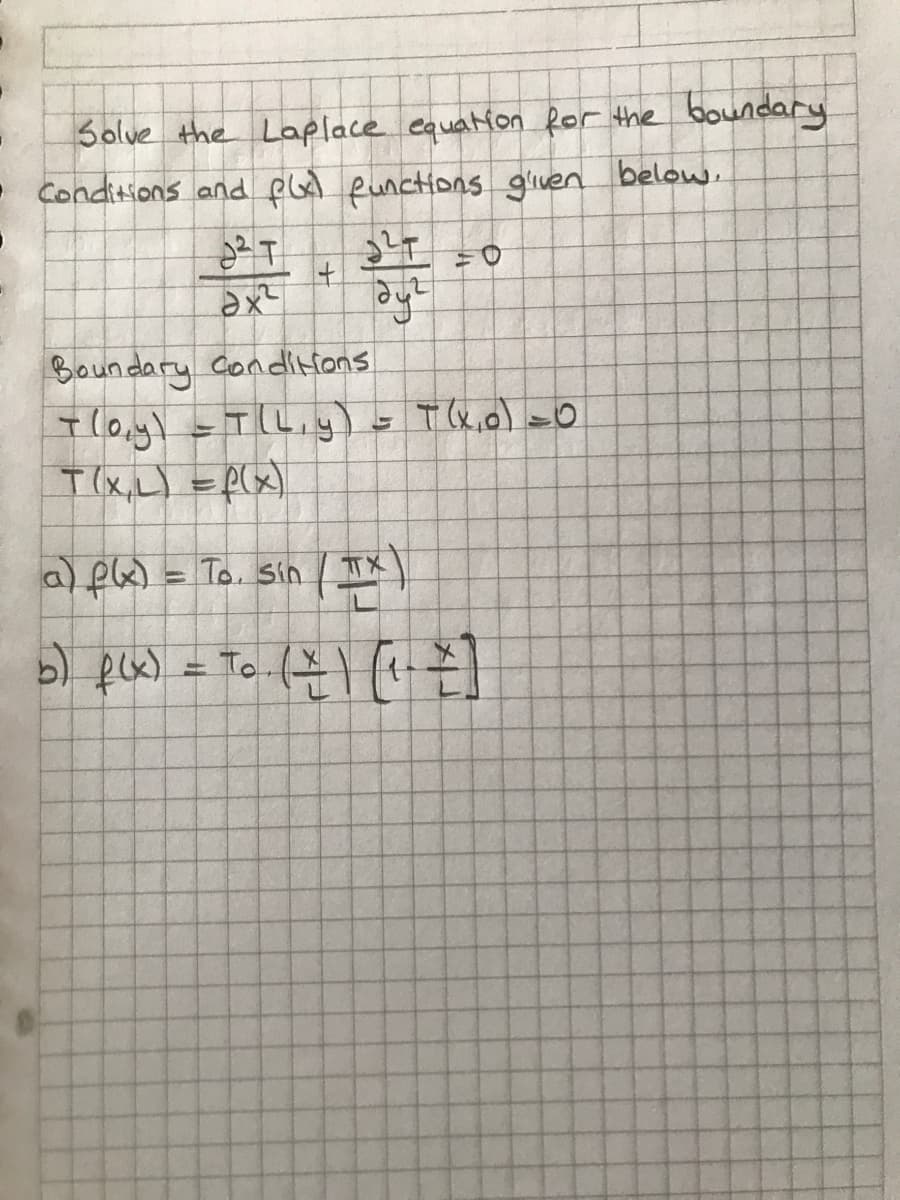 Solve the Laplace equation for the boundary
Conditions and f(x) functions given below.
∂²T/∂x² + ∂²T/∂y² = 0
Boundary Conditions
T(0,y) = T(L,y) = T(x,0) = 0
T(x,L) = f(x)
a) f(x) = To. sin (πx/L)
b) f(x) = To. (x/L) [1- x/L]